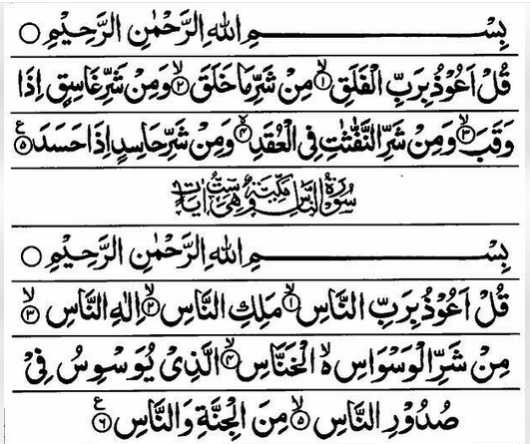 بِسْمِ اللهِ الرَّحْمٰنِ الرَّحِيْمِ ○
قُلْ اَعُوْذُ بِرَبِّ الْفَلَقِ ۙ﴿۱﴾ مِنْ شَرِّ مَا خَلَقَ ۙ﴿۲﴾ وَمِنْ شَرِّ غَاسِقٍ اِذَا
وَقَبَ ۙ﴿۳﴾ وَمِنْ شَرِّ النَّفّٰثٰتِ فِى الْعُقَدِ ۙ﴿۴﴾ وَمِنْ شَرِّ حَاسِدٍ اِذَا حَسَدَ ﴿۵﴾ ع
سُوْرَةُ النَّاسِ مَكِّيَّةٌ وَّهِىَ سِتُّ اٰيَاتٍ
بِسْمِ اللهِ الرَّحْمٰنِ الرَّحِيْمِ ○
قُلْ اَعُوْذُ بِرَبِّ النَّاسِ ۙ﴿۱﴾ مَلِكِ النَّاسِ ۙ﴿۲﴾ اِلٰهِ النَّاسِ ۙ﴿۳﴾
مِنْ شَرِّ الْوَسْوَاسِ ۙ۬ الْخَنَّاسِ ۙ﴿۴﴾ الَّذِىْ يُوَسْوِسُ فِىْ
صُدُوْرِ النَّاسِ ۙ﴿۵﴾ مِنَ الْجِنَّةِ وَالنَّاسِ ﴿۶﴾ ع